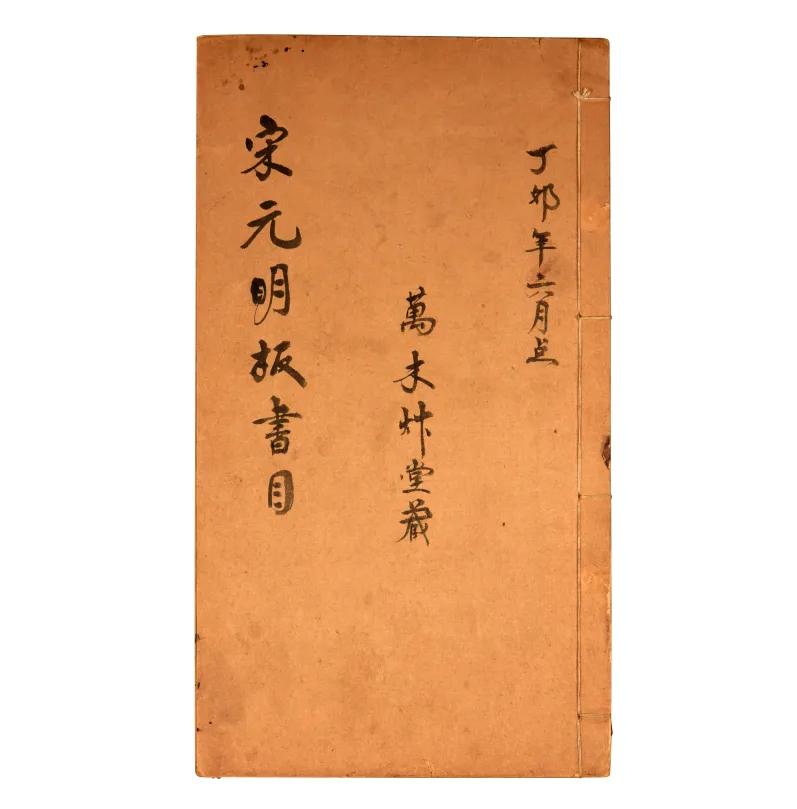 丁卯年六月点
萬木艸堂藏
宋元明板書目